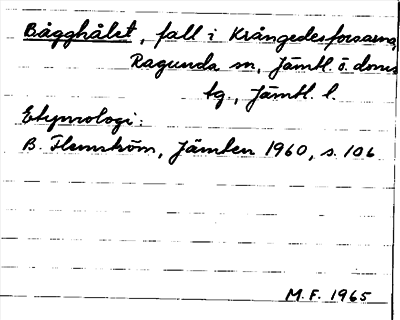 Bågghålet, fall i Krångedesforsarna,
Ragunda sn, Jämtl. ö. doms
tg., Jämtl. l.
Etymologi:
B. Flemström, Jämten 1960, s. 106
M.F. 1965